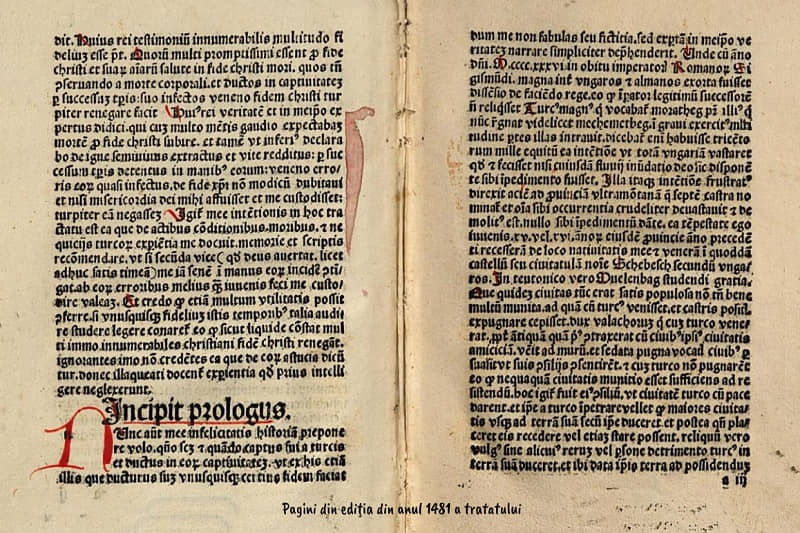 dit. Huius rei testimoniū innumerabilis multitudo fi
delium esse pt. Quorū multi promptissimi essent ꝓ fide
christi et suaꝝ aīarū salute in fide christi mori. quos tn̄
ꝑseruando a morte corporali. et ductos in captiuitatez
ꝑ successuz tꝑis: suo infectos veneno fidem christi tur
piter renegare facit. Huiꝰ rei veritatē et in meipo ex
pertus didici. qui cuz multo mentis gaudio expectabaz
mortē ꝓ fide christi subire. et tamē vt inferiꝰ declara
bo de igne semiuiuus extractus et vite redditus: ꝑ suc
cessum tꝑis detentus in manibꝰ eorum: veneno erro/
ris eoꝝ quasi infectus. de fide xp̄i nō modicū dubitaui
et nisi misericordia dei mihi affuisset et me custodisset:
turpiter eā negassez Igit̄ mee intentionis in hoc tra
ctatu est ea que de actibus cōditionibus. moribus. et ne
quicijs turcoꝝ exꝑiētia me docuit. memorie et scriptis
recōmendare. vt si secūda vice (qd̄ deus auertat. licet
adhuc satis timeā) me iā senē ī manus eoꝝ incidē cōti/
gat. ab eoꝝ erroribus melius ꝙ iuuenis feci me custo/
dire valeaz. Et credo ꝙ etiā multum vtilitatis possit
ꝓferre. si vnusquisqz fidelium istis temporibꝰ talia audi
re studere legere conaret̄ eo ꝙ sicut liquide cōstat mul
ti immo innumerabiles christiani fidē christi renegāt.
ignorantes imo nō credētes ea que de eoꝝ astucia dicū
tur. donec illaqueati docent̄ exꝑientia qd̄ prius intelli
gere neglexerunt.
Incipit prologus.
NUnc aūt mee infelicitatis historiā prepone
re volo. quō scz et quādo captus sui a turcis
et ductus in eoꝝ captiuitatez. vt ex his etiā
illis que dicturus suz vnusquisqz certius fidem faciat
dum me non fabulas seu fictitia. sed exꝑta in meipo ve
ritatez narrare simpliciter dep̄henderit. Unde cū āno
dn̄i. M. cccc. xxxvi in obitu imperatoꝝ Romanoꝝ Si
gismūdi. magna int̄ vngaros et almanos exorta fuisset
dissēsio de faciēdo rege. eo ꝙ īꝑator legitimū successorē
n̄ reliqsset Turcꝰ magnꝰ
nūc regnat videlicet mechemetbegꝝ grauī exercitꝰ mlti
tudine ꝑtes illas intrauit. dicebat̄ eni habuisse tricēto
rum mille equitū ea intētiōe vt totā vngariā vastaret
qd̄ et fecisset nisi cuiusdā fluuij inūdatio deo sic disponē
te sibi īpedimento fuisset. Illa itaqz intētione frustratꝰ
direxit aciē ad ꝓuinciā vltramōtanā q̄ septē castra no
minat̄ et oīa sibi occurrentia crudeliter deuastauit et de
molitꝰ est. nullo sibi īpedimentū dāte. ea tēpestate ego
iuuenis. xv. vel. xvi. ānoꝝ eiusdē ꝓuincie āno precedē
ti recesserā de loco natiuitatis mee et venerā ī quoddā
castellū seu ciuitatulā noīe Schebesch secundū vnga/
ros. In teutonico vero Muelenbag studendi gratia.
Que quidez ciuitas tūc erat satis populosa nō tn̄ bene
multū munita. ad quā cū turcꝰ venisset. et castris positꝭ
expugnare cepisset. dux valachoruz q cuz turco vene/
rat. ꝓpt̄ antiquā quā pꝰ ꝯtraxerat cū ciuibꝰ ipsiꝰ ciuitatis
amiciciā. vēit ad murū. et sedata pugna vocatꝭ ciuibꝰ ꝑ
suasit vt suis ꝯsilijs ꝯsentirēt. et cuz turco nō pugnarēt
eo ꝙ nequaquā ciuitatis munitio esset sufficiens ad re
sistendū. hoc igit̄ fuit eiꝰ ꝯsiliū. vt ciuitatē turco cū pace
darent. et ip̄e a turco īpetrare vellet ꝙ maiores ciuita/
tis vsqz ad terrā suā secū ip̄e duceret. et postea qn̄ pla/
ceret eis recedere vel etiaz stare possent. reliquū vero
vulgꝰ sine alicuiꝰ reruz vel ꝑsone detrimento turcꝰ in
terrā suā duceret. et ibi data ip̄is terra ad possidenduz
a iij
Pagini din ediția din anul 1481 a tratatului